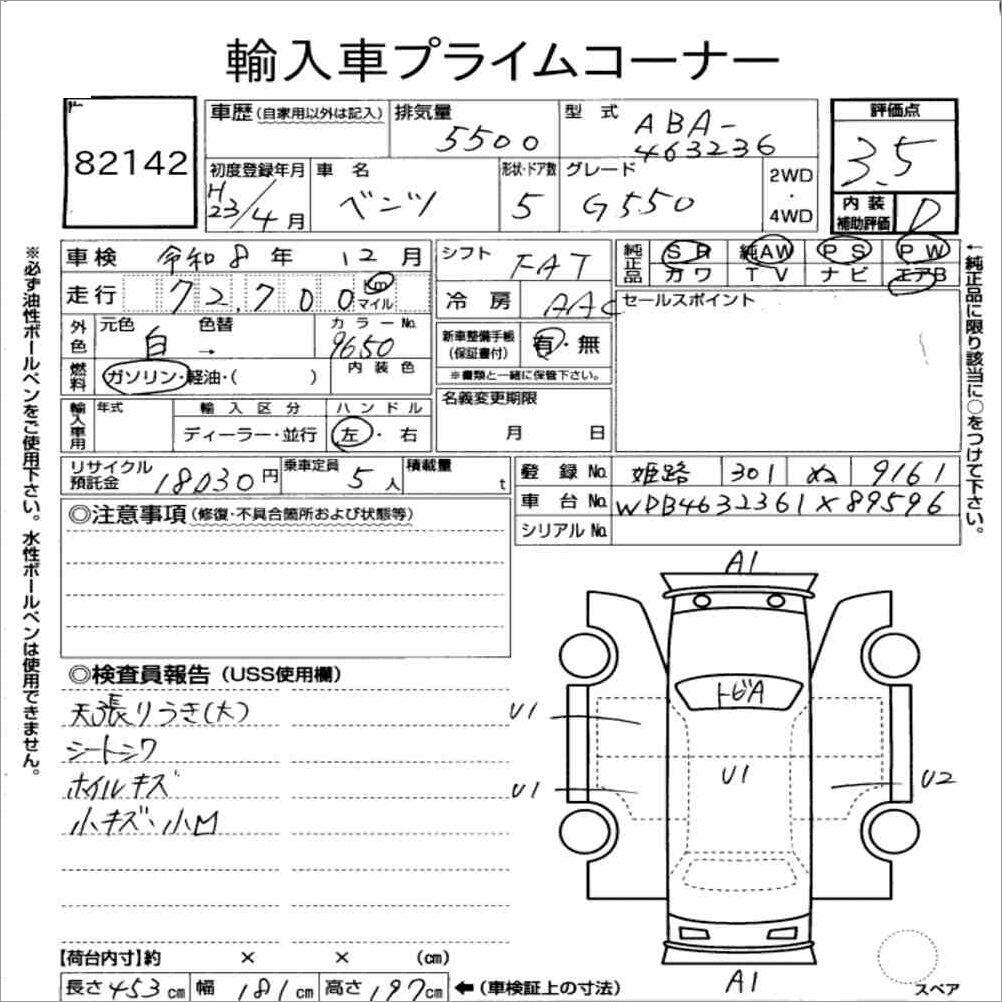 輸入車プライムコーナー
82142
車歴 (自家用以外は記入) 排気量 5500 型式 ABA-463236
初度登録年月 H23/4月 車名 ベンツ 形状・ドア数 5 グレード G550 2WD・4WD
評価点 3.5
内装補助評価 D
車検 令和8年 12月 シフト FAT
走行 72,700 Km マイル 冷房 AAC
純正品 SR 純AW PS PW
カワ TV ナビ エアB
外色 元色 白 色替 → カラーNo. 9650
新車整備手帳(保証書付) 有・無
※書類と一緒に保管下さい。
セールスポイント
燃料 ガソリン・軽油・( ) 内装色
名義変更期限 月 日
輸入車用 年式 輸入区分 ディーラー・並行 ハンドル 左・右
リサイクル預託金 18030円 乗車定員 5人 積載量 t
登録No. 姫路 301 ぬ 9161
車台No. WDB4632361X89596
シリアルNo.
◎注意事項(修復・不具合箇所および状態等)
◎検査員報告(USS使用欄)
天張りうき(大)
シートシワ
ホイルキズ
小キズ・小凹
A1
トビA
U1
U1
U1
U2
A1
スペア
【荷台内寸】約 × × (cm)
長さ 453cm 幅 181cm 高さ 197cm ←(車検証上の寸法)
※必ず油性ボールペンをご使用下さい。水性ボールペンは使用できません。
←純正品に限り該当に○をつけて下さい。